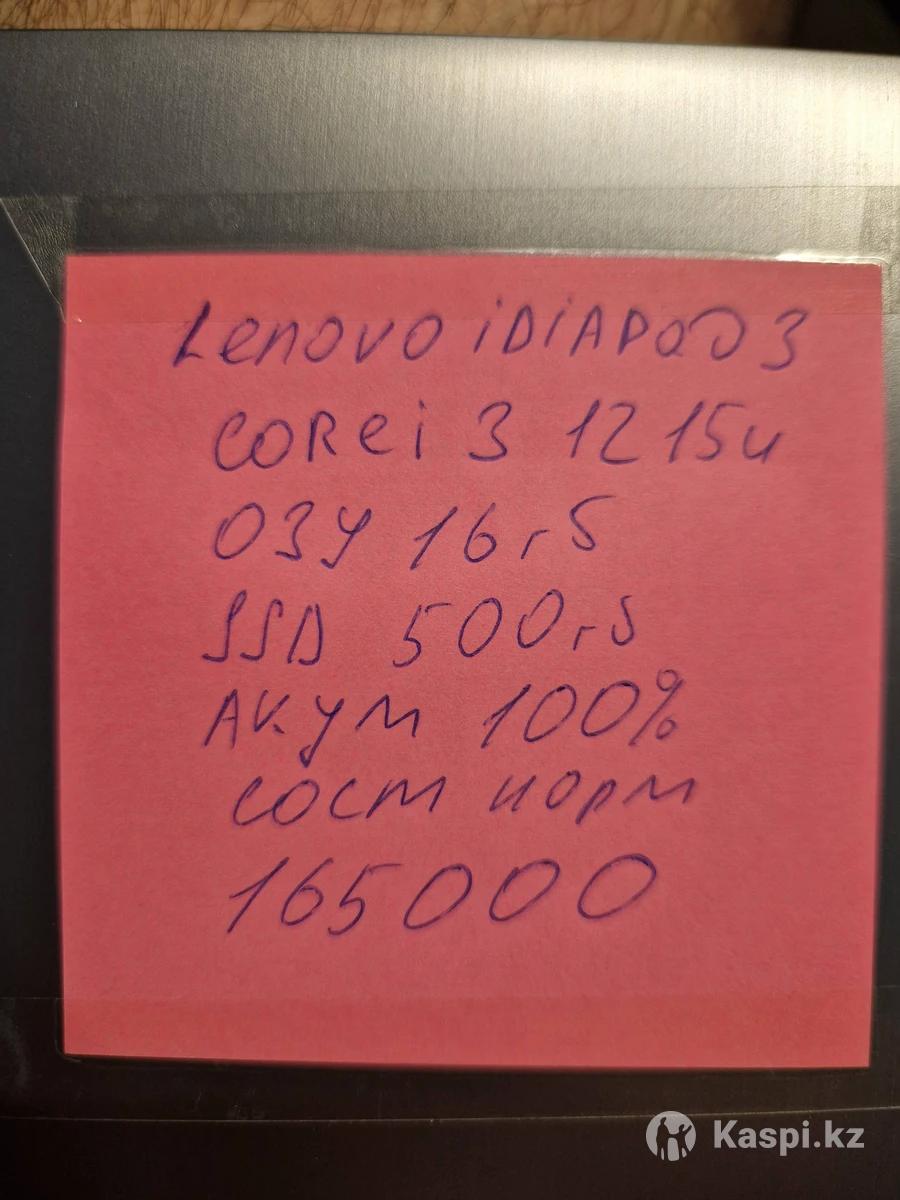 Lenovo iDiAPAD 3
COREi 3 1215u
ОЗУ 16 гб
SSD 500 гб
Акум 100%
сост норм
165000
Kaspi.kz